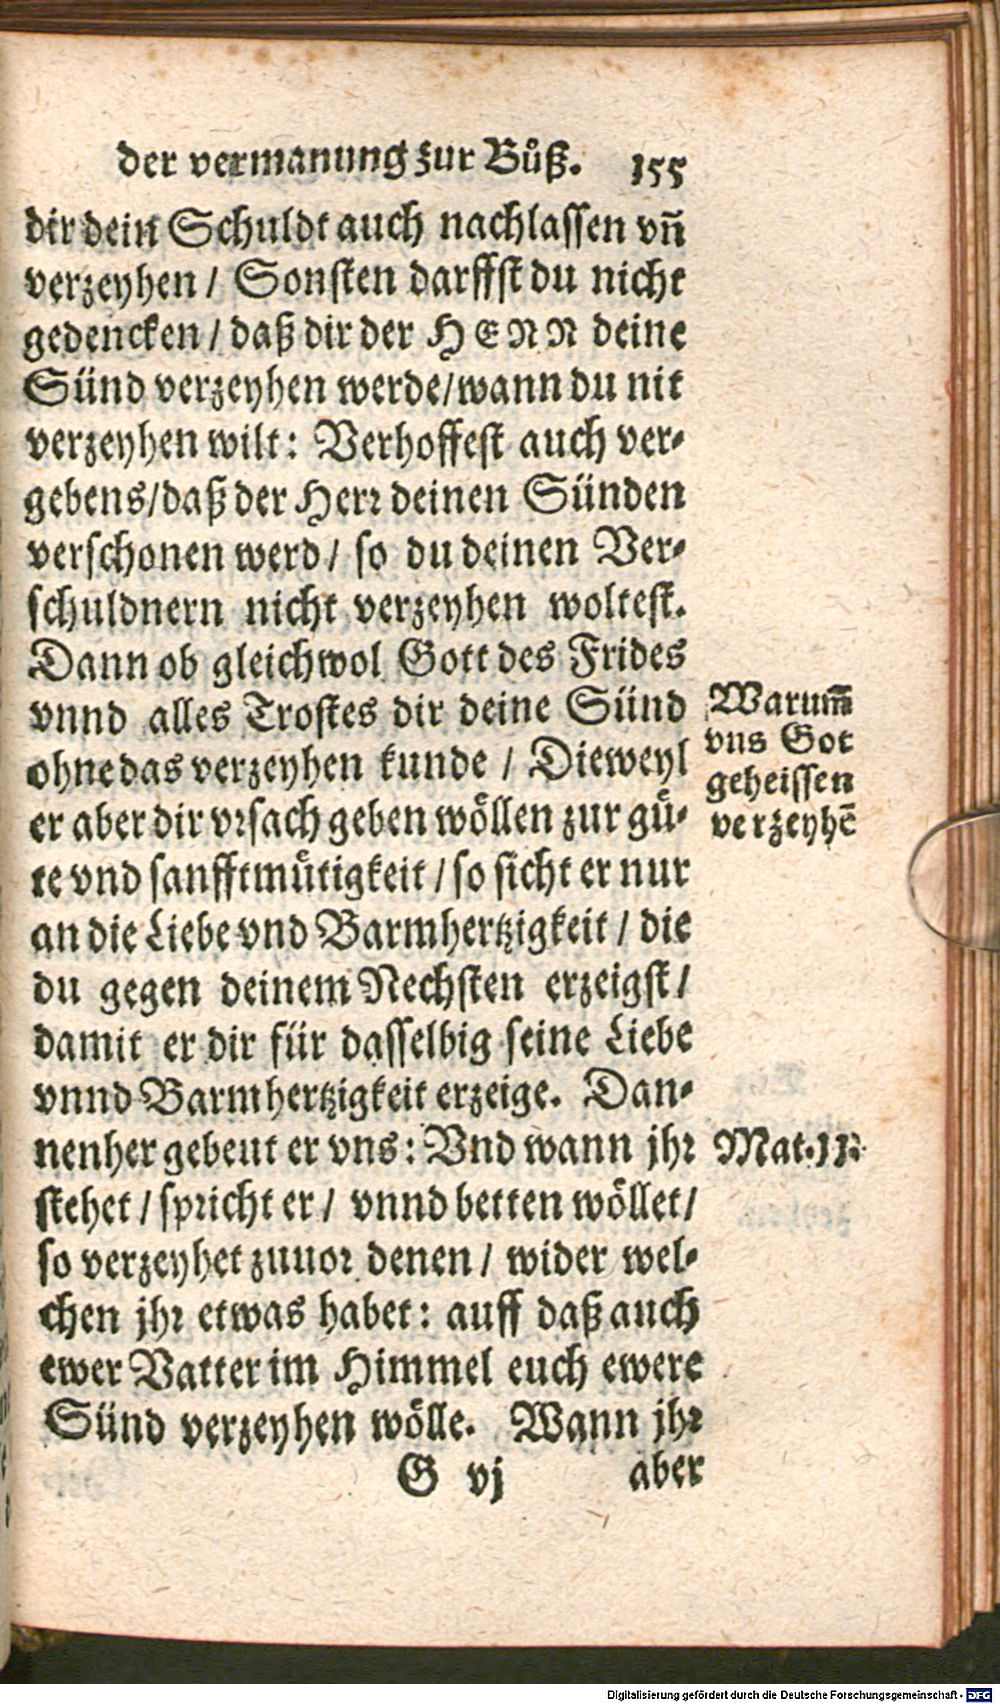 der vermanung zur Bůß. 155
dir dein Schuldt auch nachlassen vn̄
verzeyhen / Sonsten darffst du nicht
gedencken / daß dir der HERR deine
Sünd verzeyhen werde / wann du nit
verzeyhen wilt: Verhoffest auch ver-
gebens / daß der Herr deinen Sünden
verschonen werd / so du deinen Ver-
schuldnern nicht verzeyhen woltest.
Dann ob gleichwol Gott des Frides
vnnd alles Trostes dir deine Sünd
ohne das verzeyhen kunde / Dieweyl
er aber dir vrsach geben wöllen zur gů-
te vnd sanfftmůtigkeit / so sicht er nur
an die Liebe vnd Barmhertzigkeit / die
du gegen deinem Nechsten erzeigst /
damit er dir für dasselbig seine Liebe
vnnd Barmhertzigkeit erzeige. Dan-
nenher gebeut er vns: Vnd wann jhr
stehet / spricht er / vnnd betten wöllet /
so verzeyhet zuuor denen / wider wel-
chen jhr etwas habet: auff daß auch
ewer Vatter im Himmel euch ewere
Sünd verzeyhen wölle. Wann jhr
G vj aber
Warum̄
vns Got
geheissen
verzeyhē
Mat. 11.
Digitalisierung gefördert durch die Deutsche Forschungsgemeinschaft - DFG